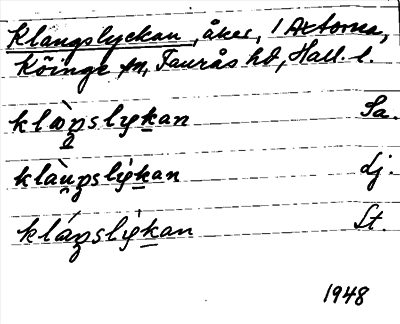 Klangslyckan, åker, 1 Axtorna,
Köinge sn, Faurås hd, Hall. l.
klàŋslykan Sa.
klàŋslỳkan Lj.
kláŋslỳkan St.
1948